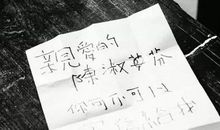 親愛的
陳淑芬
你可不可以
給我